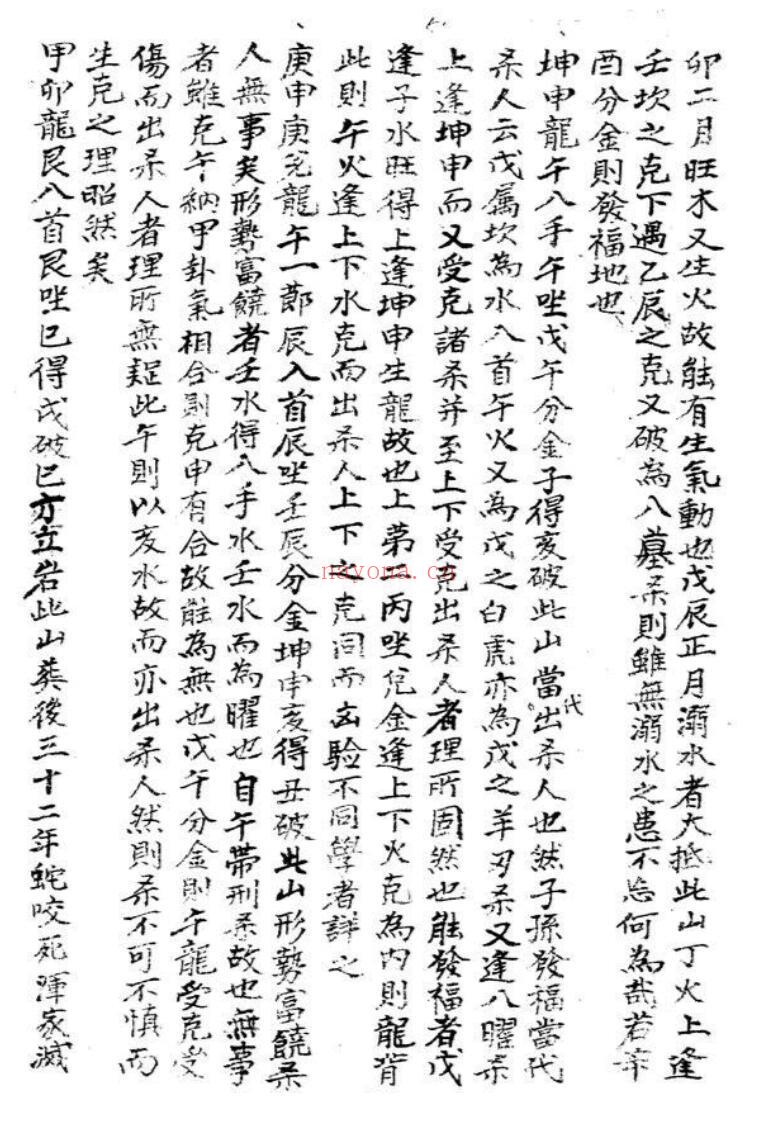 卯二月旺木又生火故能有生氣動也戊辰正月溺水者大抵此山丁火上逢
壬坎之克下遇乙辰之克又破為八墓杀則雖無溺水之患不忘何為哉若辛
酉分金則發福地也
坤申龍午八手午坐戊午分金子得亥破此山當代出杀人也然子孫發福當代
杀人云戊屬坎為水入首午火又為戊之白虎亦為戊之羊刃杀又逢八曜杀
上逢坤申而又受克諸杀并至上下受克出杀人者理所固然也能發福者戊
逢子水旺得上逢坤申生龍故也上第一丙坐兌金逢上下火克為內則龍背
此則午火逢上下水克而出杀人上下之克同而凶驗不同學者詳之
庚申庚兌龍午一節辰入首辰坐壬辰分金坤申亥得丑破此山形勢富饒杀
人無事矣形勢富饒者壬水得八手水壬水而為曜也自午帶刑杀故也無事
者雖克午納甲卦氣相合則克申有合故能為無也戊午分金則午龍受克受
傷而出杀人者理所無疑此午則以亥水故而亦出杀人然則杀不可不慎而
生克之理昭然矣
甲卯龍艮入首艮坐巳得戌破巳方立岩此山葬後三十二年蛇咬死渾家滅
nayona.cn